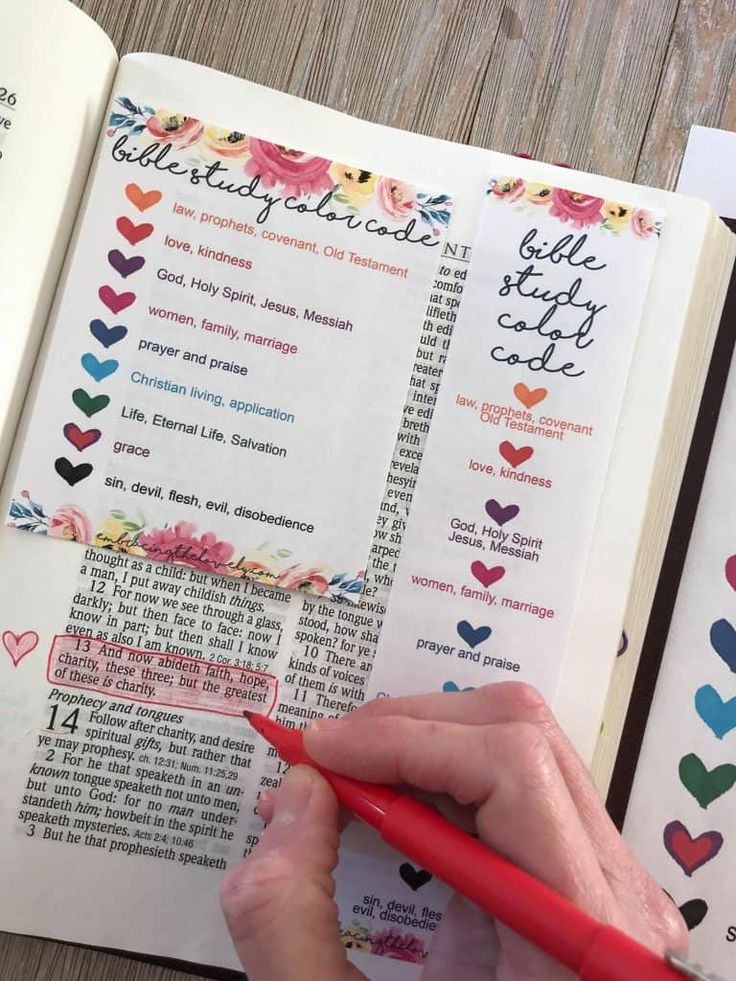 26
bible study color code
law, prophets, covenant, Old Testament
love, kindness
God, Holy Spirit, Jesus, Messiah
women, family, marriage
prayer and praise
Christian living, application
Life, Eternal Life, Salvation
grace
sin, devil, flesh, evil, disobedience
embracingthelovely.com
thought as a child: but when I became
a man, I put away childish things.
12 For now we see through a glass,
darkly; but then face to face: now I
know in part; but then shall I know
even as also I am known. 2 Cor. 3:18; 5:7
13 And now abideth faith, hope,
charity, these three; but the greatest
of these is charity.
Prophecy and tongues
14 Follow after charity, and desire
spiritual gifts, but rather that
ye may prophesy. ch. 12:31; Num. 11:25,29
2 For he that speaketh in an un-
known tongue speaketh not unto men,
but unto God: for no man under-
standeth him; howbeit in the spirit he
speaketh mysteries. Acts 2:4; 10:46
3 But he that prophesieth speaketh
by the tongue
stood, how sha
spoken? for ye
10 There ar
kinds of voices
of them is with
11 Therefo
meaning of
him th
12
bible
study
color
code
law, prophets, covenant
Old Testament
love, kindness
God, Holy Spirit
Jesus, Messiah
women, family, marriage
prayer and praise
sin, devil, fles
evil, disobedie